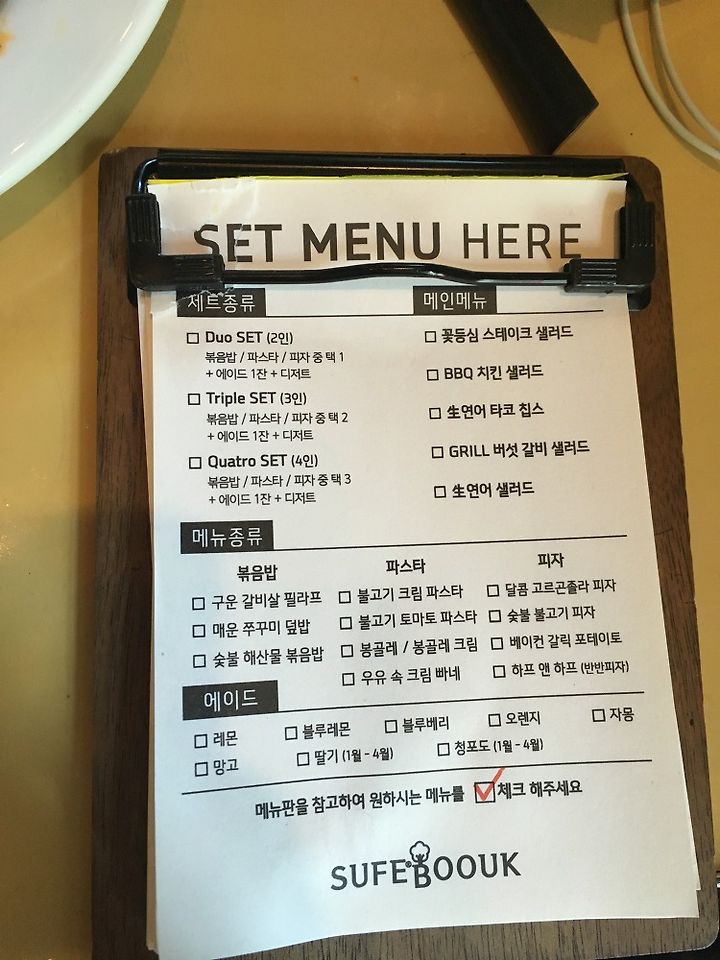 SET MENU HERE
세트종류
□ Duo SET (2인)
볶음밥 / 파스타 / 피자 중 택 1
+ 에이드 1잔 + 디저트
□ Triple SET (3인)
볶음밥 / 파스타 / 피자 중 택 2
+ 에이드 1잔 + 디저트
□ Quatro SET (4인)
볶음밥 / 파스타 / 피자 중 택 3
+ 에이드 1잔 + 디저트
메인메뉴
□ 꽃등심 스테이크 샐러드
□ BBQ 치킨 샐러드
□ 生연어 타코 칩스
□ GRILL 버섯 갈비 샐러드
□ 生연어 샐러드
메뉴종류
볶음밥
□ 구운 갈비살 필라프
□ 매운 쭈꾸미 덮밥
□ 숯불 해산물 볶음밥
파스타
□ 불고기 크림 파스타
□ 불고기 토마토 파스타
□ 봉골레 / 봉골레 크림
□ 우유 속 크림 빠네
피자
□ 달콤 고르곤졸라 피자
□ 숯불 불고기 피자
□ 베이컨 갈릭 포테이토
□ 하프 앤 하프 (반반피자)
에이드
□ 레몬 □ 블루레몬 □ 블루베리 □ 오렌지 □ 자몽
□ 망고 □ 딸기 (1월 - 4월) □ 청포도 (1월 - 4월)
메뉴판을 참고하여 원하시는 메뉴를 ☑ 체크 해주세요
SUFEBOOUK